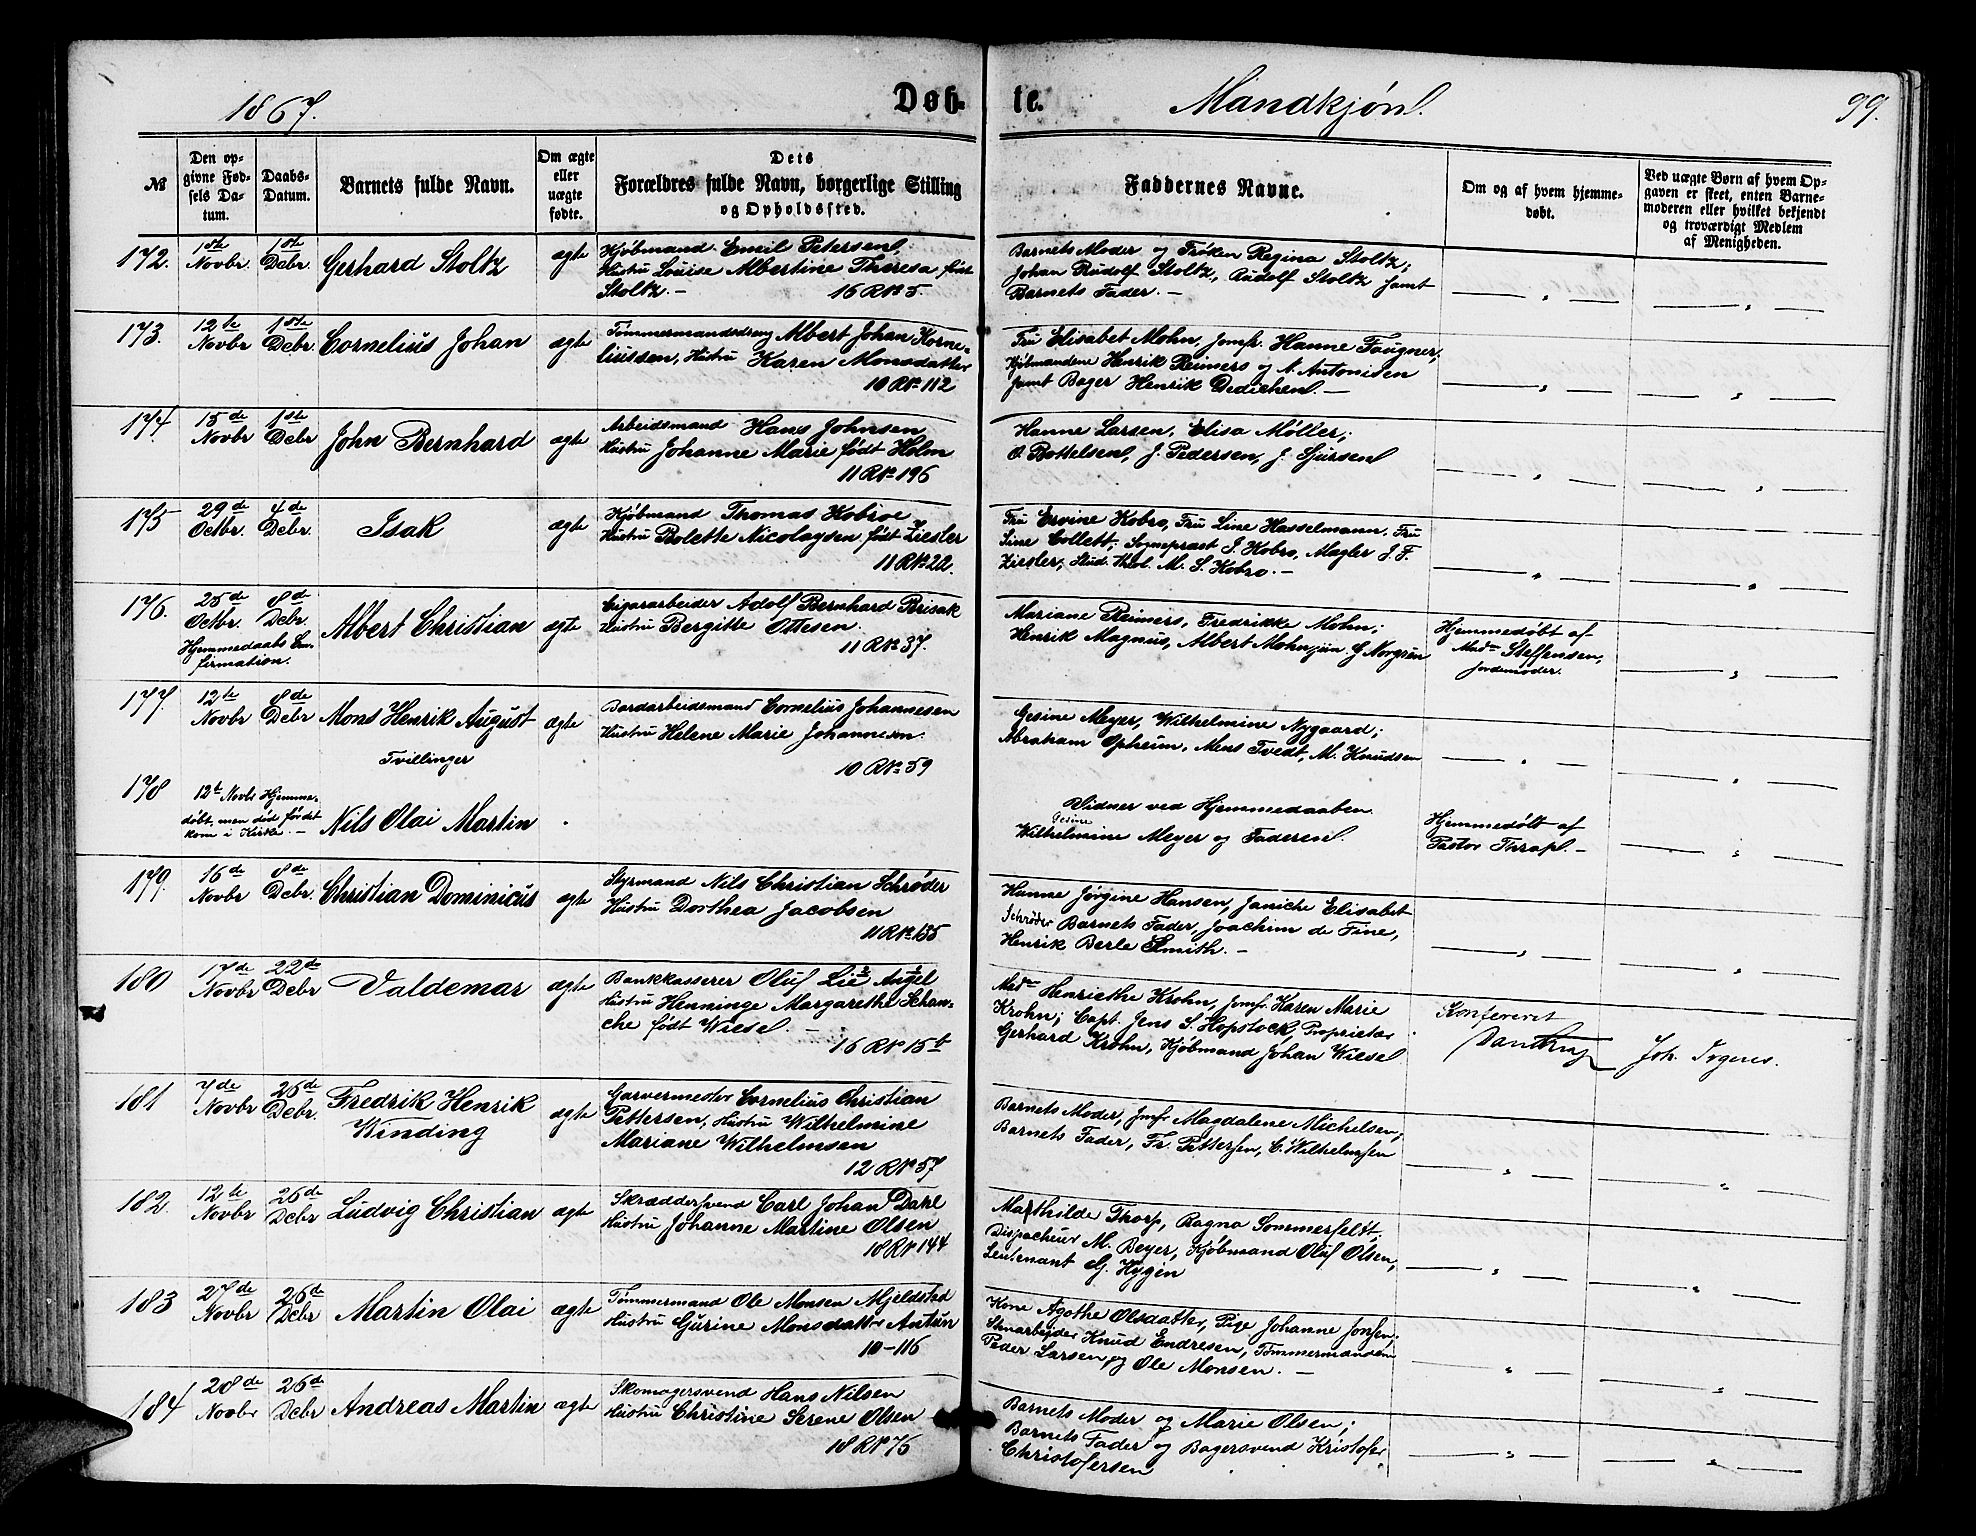 1867.
Døb-
te.
Mandkjøn.
99.
№
Den op-
givne Fød-
sels Da-
tum.
Daabs-
Datum.
Barnets fulde Navn.
Om ægte
eller
uægte
fødte.
Dets
Forældres fulde Navn, borgerlige Stilling
og Opholdssted.
Faddernes Navne.
Om og af hvem hjemme-
døbt.
Ved uægte Børn af hvem Op-
gaven er skeet, enten Barne-
moderen eller hvilket bekjendt
og troværdigt Medlem
af Menigheden.
172.
1ste
Novbr.
1ste
Debr.
Gerhard Stoltz
ægte
Kjøbmand Emil Petersen,
Hustru Louise Albertine Theresa, født
Stoltz. –
16 R № 5.
Barnets Moder og Frøken Regina Stoltz;
Johan Rudolf Stoltz, Rudolf Stoltz samt
Barnets Fader. –
173.
12te
Novbr
1ste
Debr.
Cornelius Johan
ægte
Tømmermandsdreng Albert Johan Korne-
liussen, Hustru Karen Monsdatter
10 R № 112
Fru Elisabet Mohn, Jomfr. Hanne Fougner,
Kjøbmændene Henrik Reimers og A. Antonisen
samt Bager Henrik Dedichen. –
174
15de
Novbr
1ste
Debr
John Bernhard
ægte
Arbeidsmand Hans Johnsen
Hustru Johanne Marie født Holm
11 R № 196
Hanne Larsen, Elisa Møller;
O Bottelsen, J. Pedersen, J. Sjursen
175
29de
Octbr.
4de
Debr.
Isak
ægte
Kjøbmand Thomas Kobroe
Hustru Bolette Nicolaysen født Ziesler
11 R № 22.
Fru Ervine Kobro, Fru Line Hasselmann, Fru
Line Collett; Sognepræst J. Kobro, Mægler J. F.
Ziesler, Stud. theol. M. S. Kobro. –
176.
25de
Octbr.
Hjemmedaabs Con-
firmation.
8de
Debr.
Albert Christian
ægte
Cigararbeider Adolf Bernhard Brisak
Hustru Bergitte Ottesen.
11 R № 37.
Mariane Reimers, Fredrikke Mohn;
Henrik Magnus, Albert Mohn jun. G Norgrén
Hjemmedøbt af
Mad. Steffensen,
Jordemoder.
177.
12te
Novbr
8de
Debr
Mons Henrik August
Tvillinger
ægte
Bordarbeidsmand Cornelius Johannesen
Hustru Helene Marie Johannesen.
10 R № 59
Gesine Meyer, Wilhelmine Nygaard;
Abraham Opheim, Mens Tvedt, M. Knudsen
178
12t Novbr Hjemme-
døbt, men død før det
kom i Kirke. –
Nils Olai Martin
Vidner ved Hjemmedaaben
Gesine
Wilhelmine Meyer og Faderen.
Hjemmedøbt af
Pastor Thrap. –
179.
16de
Novbr
8de
Debr.
Christian Dominicus
ægte
Styrmand Nils Christian Schrøder
Hustru Dorthea Jacobsen
11 R № 135
Hanne Jørgine Hansen, Janiche Elisabet
Schrøder Barnets Fader, Joachim de Fine,
Henrik Berle Smith. –
180
17de
Novbr
22de
Debr
Valdemar
ægte
Bankkasserer Oluf Lie Angel
Hustru Henninge Margarethe Schan-
che født Wiesel. –
16 R № 15 b
Mad. Henriethe Krohn, Jomfr. Karen Marie
Krohn; Capt. Jens S. Hopstock, Proprietær
Gerhard Krohn, Kjøbmand Johan Wiesel
Konfereret
Joh.
181
7de
Novbr
26de
Debr.
Fredrik Henrik
Winding
ægte
Garvermester Cornelius Christian
Pettersen, Hustru Wilhelmine
Mariane Wilhelmsen
12 R № 57
Barnets Moder, Jmfr Magdalene Michelsen;
Barnets Fader, Fr. Pettersen, C. Wilhelmsen
182.
12te
Novbr
26de
Debr
Ludvig Christian
ægte
Skræddersvend Carl Johan Dahl
Hustru Johanne Martine Olsen
18 R № 144
Mathilde Thorp, Ragna Sommerfeldt;
Dispacheur M. Beyer, Kjøbmand Oluf Olsen,
Leutenant G. Hygen
183
27de
Novbr
26de
Debr
Martin Olai
ægte
Tømmermand Ole Monsen Mjeldstad
Hustru Gurine Monsdatter Antun
10 – 116
Kone Agothe Olsdatter, Pige Johanne Jonsen;
Stenarbeider Knud Endresen, Tømmermændene
Peder Larsen og Ole Monsen. –
184
28de
Novbr
26de
Debr
Andreas Martin
ægte
Skomagersvend Hans Nilsen
Hustru Christine Serene Olsen
18 R № 75
Barnets Moder og Marie Olsen;
Barnets Fader og Bagersvend Kristofer
Christofersen